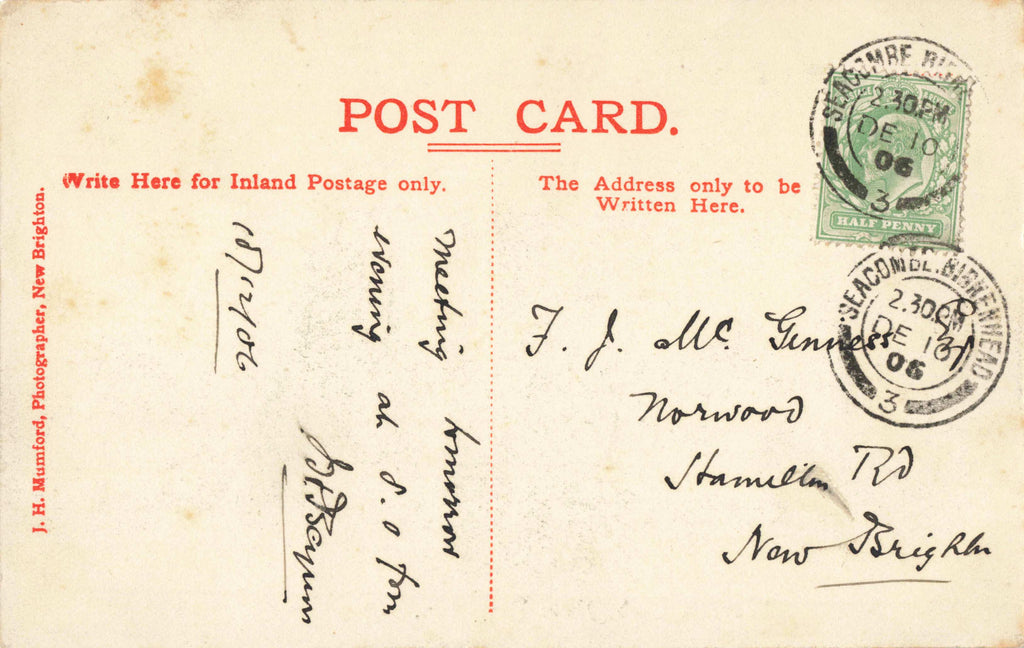 POST CARD.
Write Here for Inland Postage only.
The Address only to be
Written Here.
J. H. Mumford, Photographer, New Brighton.
SEACOMBE. BIRK
2.30PM
DE 10
06
3
HALF PENNY
SEACOMBE. BIRKENHEAD
2.30PM
DE 10
06
3
Meeting tomorrow
evening at 8.0 pm
F. J. Mc Genness
Norwood
Hamilton Rd
New Brighton